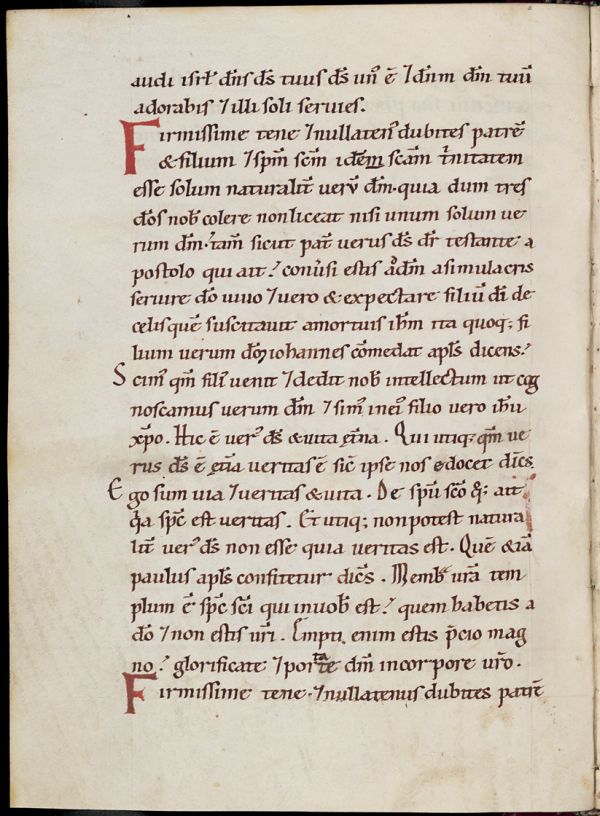 audi isrł dn̄s ds̄ tuus ds̄ un᷒ ē ⁊ dn̄m dm̄ tuū
adorabis ⁊ illi soli seruies.
Firmissime tene ⁊ nullaten᷒ dubites patrē
& filium ⁊ spm̄ scm̄ idēm scam̄ trinitatem
esse solum naturalit̄ verū dm̄. quia dum tres
dōs nob̄ colere non liceat nisi unum solum ue
rum dm̄. tam̄ sicut pat̄ verus ds̄ dr̄ testante a
postolo qui ait. conūsi estis ad dm̄ a simulacris
seruire dō uiuo ⁊ uero & expectare filiū dī de
celis quē suscitauit a mortuis ihm̄ ita quoq; fi
lium verum dm̄ iohannes cōmedat apls̄ dicens.
Scim᷒ qm̄ fili᷒ venit ⁊ dedit nob̄ intellectum ut cog
noscamus verum dm̄ ⁊ sim᷒ in ei᷒ filio vero ihū
xp̄o. Hic ē ver᷒ ds̄ & uita etn̄a. Qui utiq; qm̄ ue
rus ds̄ ē etn̄a veritas ē sic̄ ipse nos edocet dicēs.
Ego sum uia ⁊ veritas & uita. De spū scō q̄q; ait
q̄a spc̄ est veritas. Et utiq; non potest natura
lit̄ ver᷒ ds̄ non esse quia veritas est. Quē & iā
paulus apls̄ confitetur dicēs. Memb̄ ur̄a tem
plum ē spc̄ scī qui in uob̄ est. quem habetis a
dō ⁊ non estis ur̄i. Empti enim estis p̄cio mag
no. glorificate ⁊ portate dm̄ in corpore ur̄o.
Firmissime tene. ⁊ nullatenus dubites patrē